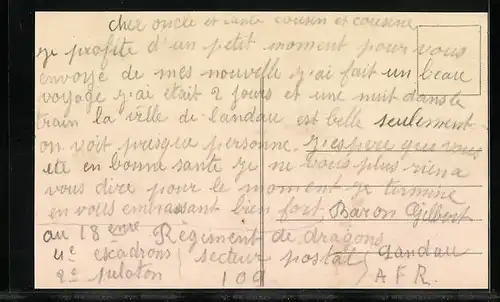 cher oncle et tante cousin et cousine
je profite d'un petit moment pour vous
envoyé de mes nouvelle j'ai fait un beau
voyage j'ai etait 2 jours et une nuit dans le
train la ville de landau est belle seulement
on voit presque personne. j'espere que vous
ete en bonne sante je ne vous plus rien a
vous dire pour le moment je termine
en vous embrassant bien fort. Baron Gilbert
au 18 eme Regiment de dragons
4e escadrons secteur postal Landau
2e peloton 109 A F R.